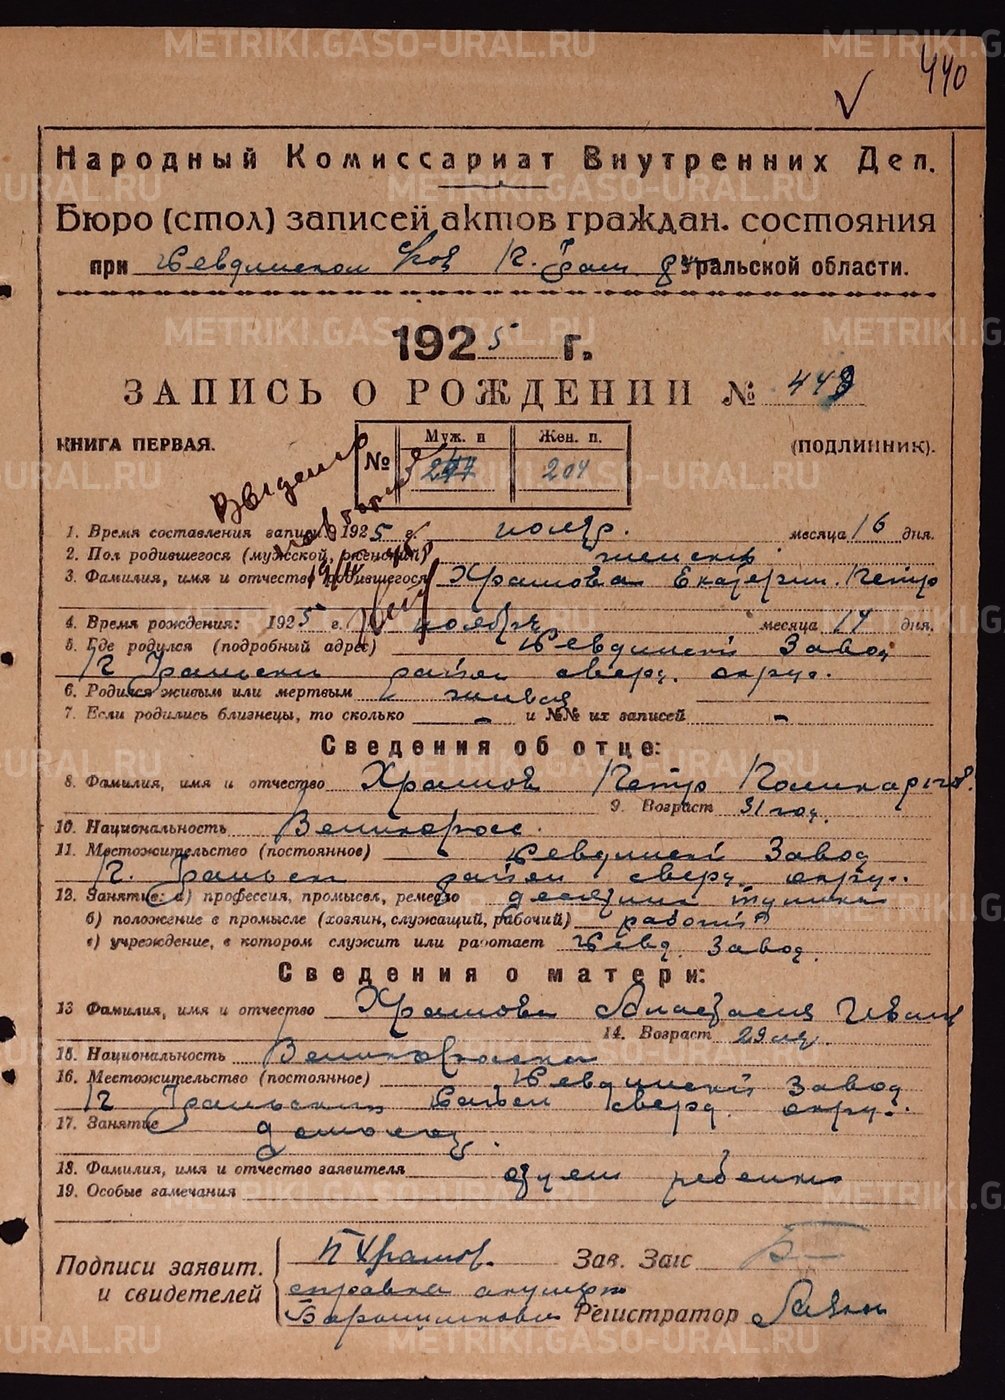 METRIKI.GASO-URAL.RU
440
Народный Комиссариат Внутренних Дел.
Бюро (стол) записей актов граждан. состояния
при Ревдинском Уральской области.
1925 г.
ЗАПИСЬ О РОЖДЕНИИ №
КНИГА ПЕРВАЯ.
№ Муж. п Жен. п.
204
(ПОДЛИННИК).
1. Время составления записи: 1925 г. ноябр. месяца 16 дня.
2. Пол родившегося (мужской, женский) женский
3. Фамилия, имя и отчество родившегося Храмова Екатерин. Петр
4. Время рождения: 1925 г. ноября месяца 14 дня.
5. Где родился (подробный адрес) Ревдинский Завод
П Уральский район сверд. округ.
6. Родился живым или мертвым живая
7. Если родились близнецы, то сколько - и №№ их записей -
Сведения об отце:
8. Фамилия, имя и отчество Храмов Петр Поликарпов.
9. Возраст 31 год.
10. Национальность Великоросс.
11. Местожительство (постоянное) Ревдинский Завод
П. Уральск район сверд. округ.
12. Занятие: а) профессия, промысел, ремесло
б) положение в промысле (хозяин, служащий, рабочий) рабочий
в) учреждение, в котором служит или работает Ревд. Завод.
Сведения о матери:
13 Фамилия, имя и отчество Храмова Анастасия Иван
14. Возраст 29 лет.
15. Национальность Великоросска
16. Местожительство (постоянное) Ревдинский Завод
П Уральский район сверд. округ.
17. Занятие домохоз.
18. Фамилия, имя и отчество заявителя отец ребенка
19. Особые замечания
Подписи заявит.
и свидетелей
П Храмов.
справка акушерк
Зав. Загс
Регистратор